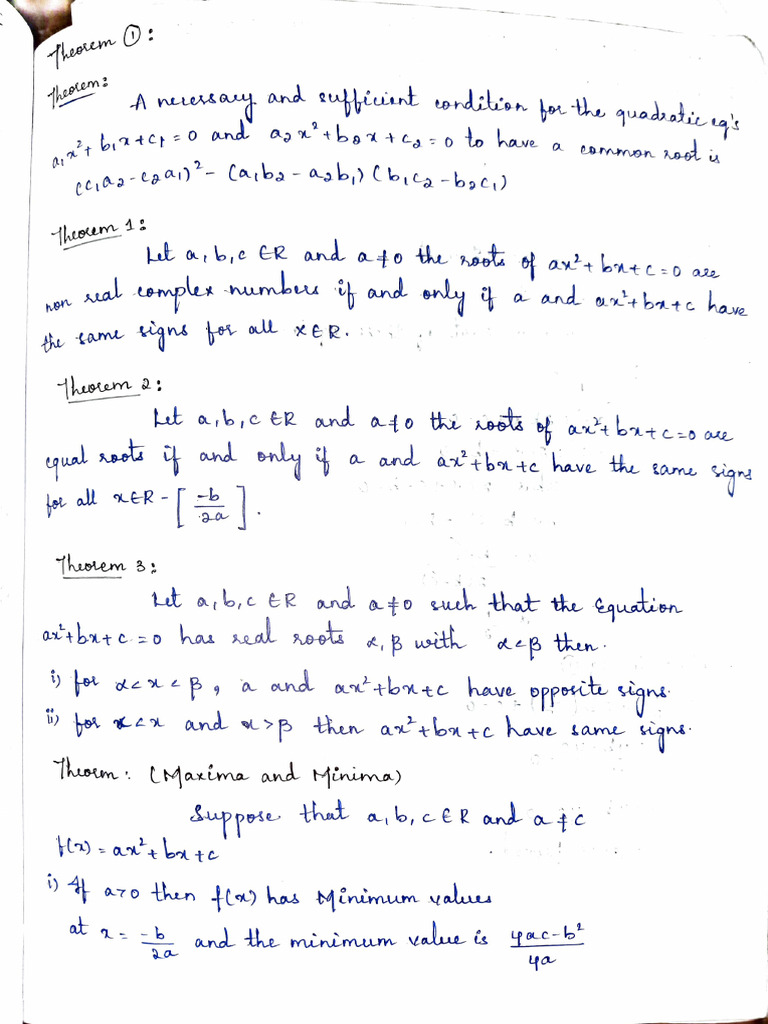 Theorem ①:
Theorem:
A necessary and sufficient condition for the quadratic eq's
a₁x²+b₁x+c₁=0 and a₂x²+b₂x+c₂=0 to have a common root is
(c₁a₂-c₂a₁)²-(a₁b₂-a₂b₁)(b₁c₂-b₂c₁)
Theorem 1:
Let a,b,c ∈R and a≠0 the roots of ax²+bx+c=0 are
non real complex numbers if and only if a and ax²+bx+c have
the same signs for all x∈R.
Theorem 2:
Let a,b,c ∈R and a≠0 the roots of ax²+bx+c=0 are
equal roots if and only if a and ax²+bx+c have the same signs
for all x∈R-[-b/2a].
Theorem 3:
Let a,b,c ∈R and a≠0 such that the Equation
ax²+bx+c=0 has real roots α,β with α<β then.
i) for α<x<β, a and ax²+bx+c have opposite signs.
ii) for x<x and x>β then ax²+bx+c have same signs.
Theorem: (Maxima and Minima)
Suppose that a,b,c∈R and a≠c
f(x)=ax²+bx+c
i) If a>0 then f(x) has Minimum values
at x=-b/2a and the minimum value is 4ac-b²/4a